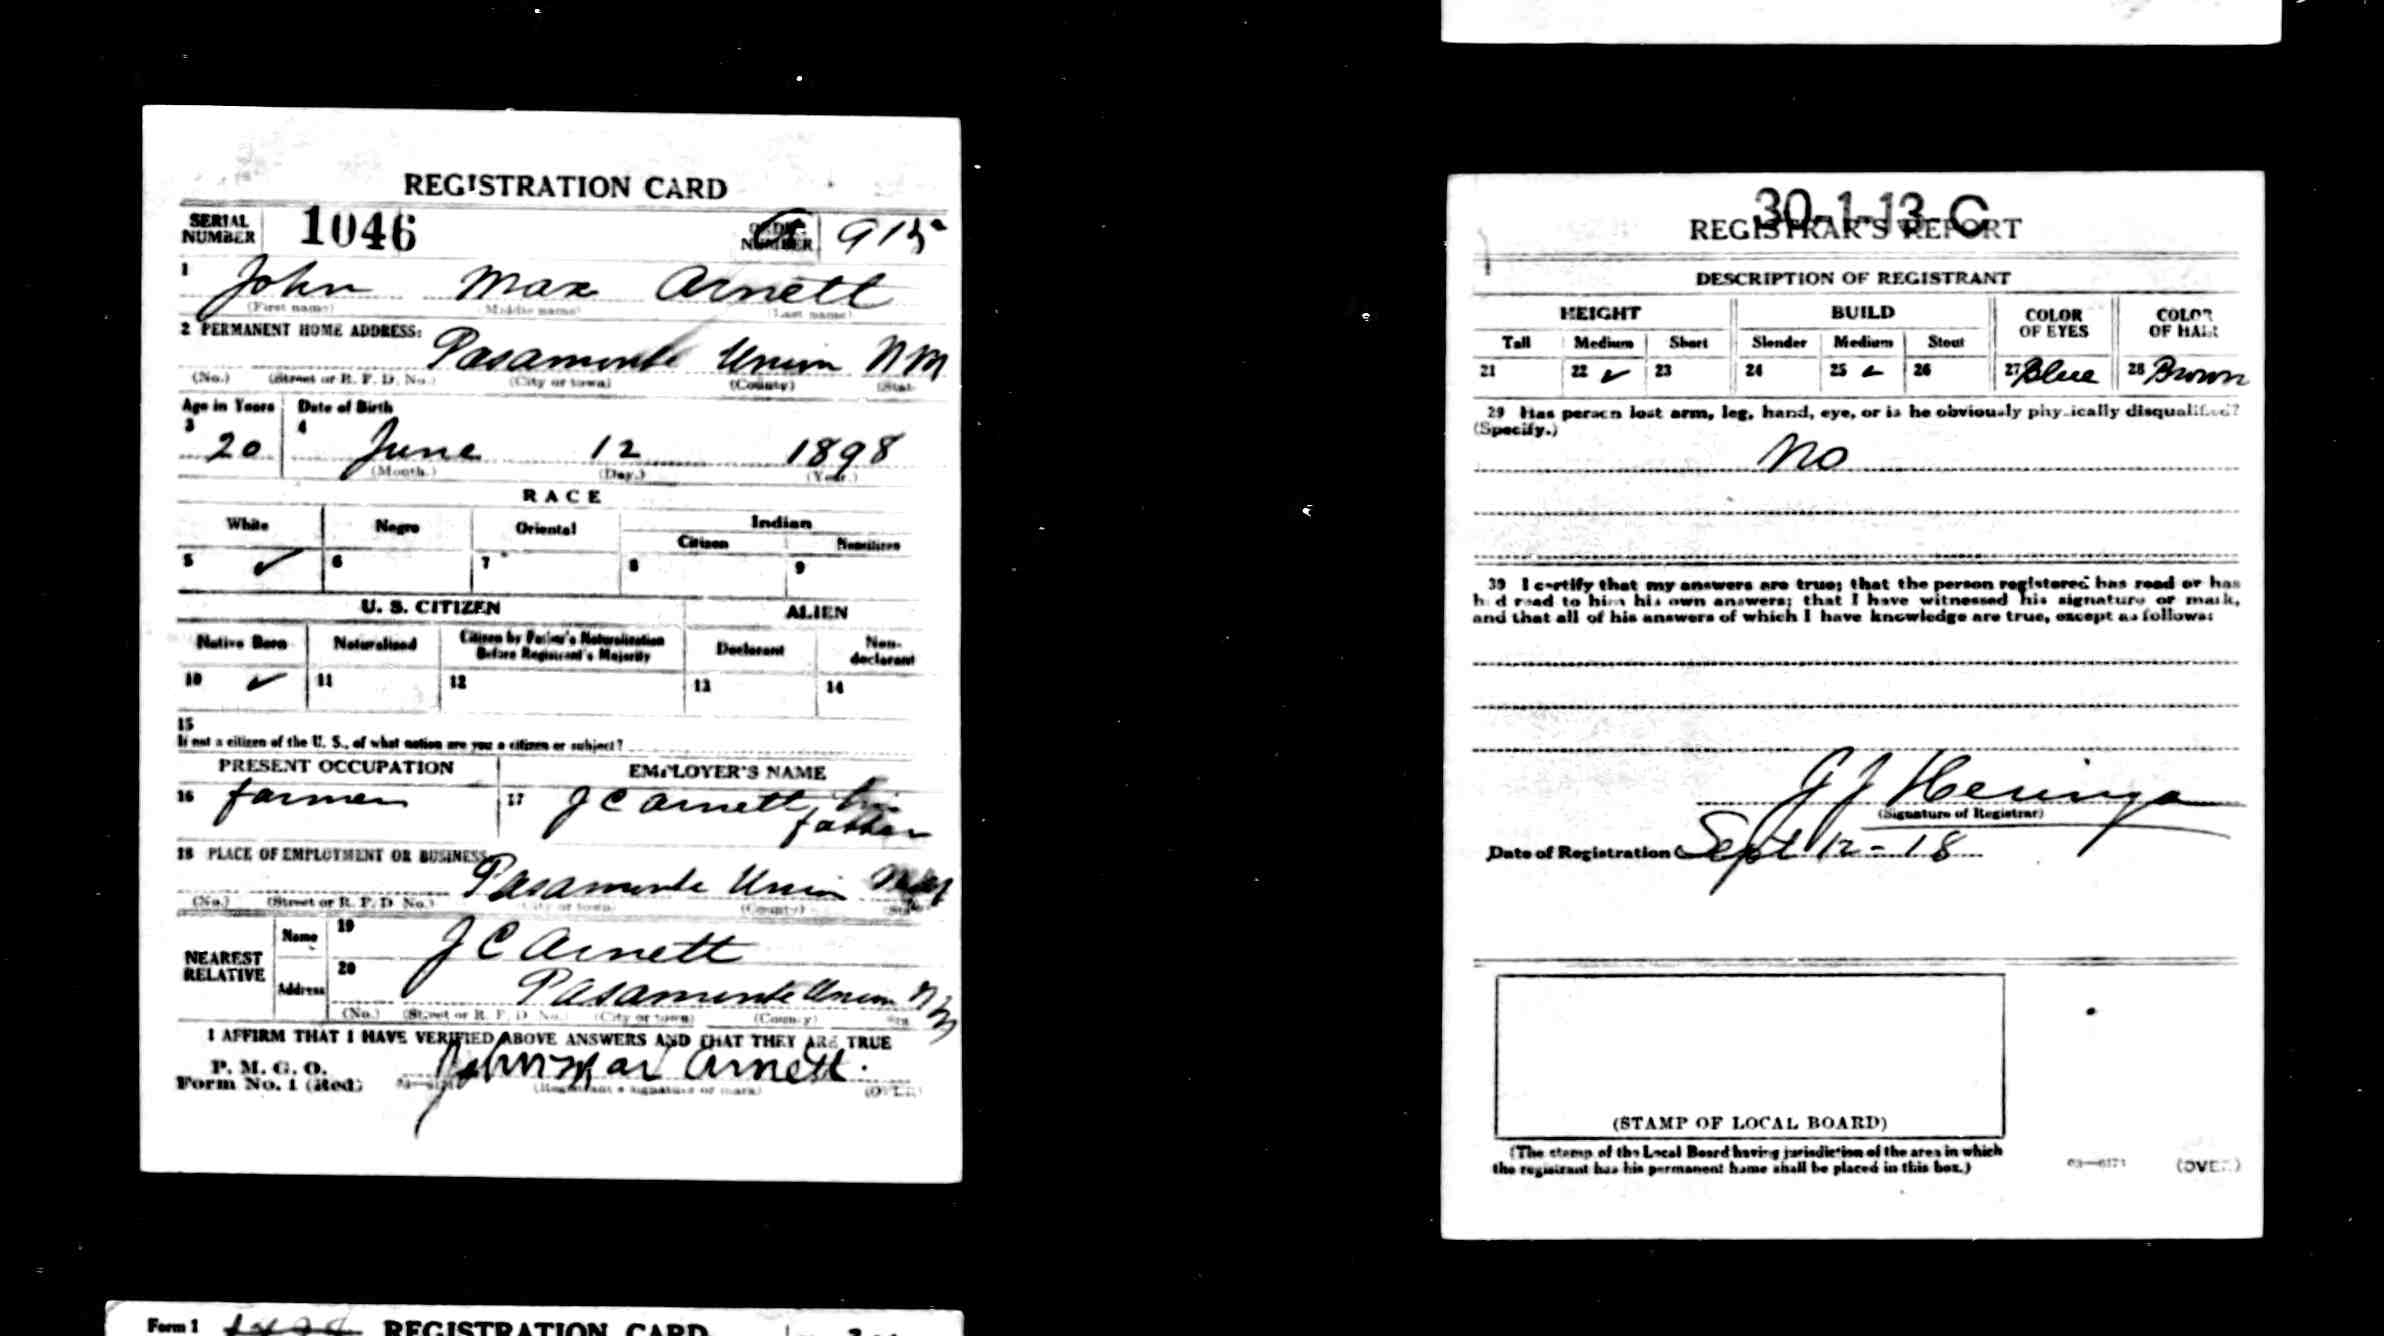 REGISTRATION CARD
SERIAL NUMBER 1046 ORDER NUMBER A 915
1 John Max Arnett
(First name) (Middle name) (Last name)
2 PERMANENT HOME ADDRESS:
Pasamonte Union N M
(No.) (Street or R. F. D. No.) (City or town) (County) (State)
Age in Years Date of Birth
3 20 4 June 12 1898
(Month.) (Day.) (Year.)
RACE
White Negro Oriental Indian
Citizen Noncitizen
5 ✓ 6 7 8 9
U. S. CITIZEN ALIEN
Native Born Naturalized Citizen by Father's Naturalization Before Registrant's Majority Declarant Non-declarant
10 ✓ 11 12 13 14
15
If not a citizen of the U. S., of what nation are you a citizen or subject?
PRESENT OCCUPATION EMPLOYER'S NAME
16 farmer 17 J C Arnett, his
father
18 PLACE OF EMPLOYMENT OR BUSINESS:
Pasamonte Union
(No.) (Street or R. F. D. No.) (City or town) (County) (State)
NEAREST RELATIVE Name 19 J C Arnett
Address 20 Pasamonte Union N M
(No.) (Street or R. F. D. No.) (City or town) (County) (State)
I AFFIRM THAT I HAVE VERIFIED ABOVE ANSWERS AND THAT THEY ARE TRUE
P. M. G. O.
Form No. 1 (Red) John Max Arnett.
(Registrant's signature or mark) (OVER)
Form 1 REGISTRATION CARD
30-1-13 C
REGISTRAR'S REPORT
DESCRIPTION OF REGISTRANT
HEIGHT BUILD COLOR OF EYES COLOR OF HAIR
Tall Medium Short Slender Medium Stout
21 22 ✓ 23 24 25 ✓ 26 27 Blue 28 Brown
29 Has person lost arm, leg, hand, eye, or is he obviously physically disqualified?
(Specify.)
No
30 I certify that my answers are true; that the person registered has read or has
had read to him his own answers; that I have witnessed his signature or mark,
and that all of his answers of which I have knowledge are true, except as follows:
G J Heringa
(Signature of Registrar)
Date of Registration Sept 12-18
(STAMP OF LOCAL BOARD)
(The stamp of the Local Board having jurisdiction of the area in which
the registrant has his permanent home shall be placed in this box.)
03—6171 (OVER)